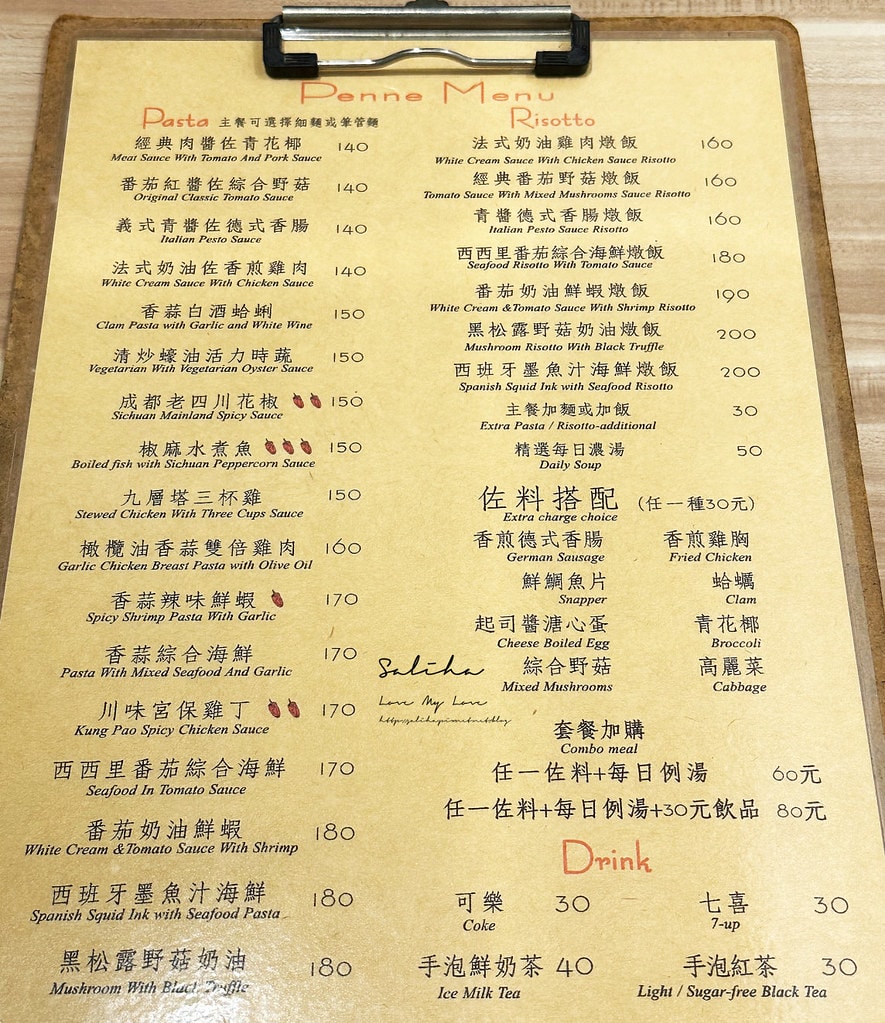 Penne Menu
Pasta 主餐可選擇細麵或筆管麵
經典肉醬佐青花椰 140
Meat Sauce With Tomato And Pork Sauce
番茄紅醬佐綜合野菇 140
Original Classic Tomato Sauce
義式青醬佐德式香腸 140
Italian Pesto Sauce
法式奶油佐香煎雞肉 140
White Cream Sauce With Chicken Sauce
香蒜白酒蛤蜊 150
Clam Pasta with Garlic and White Wine
清炒蠔油活力時蔬 150
Vegetarian With Vegetarian Oyster Sauce
成都老四川花椒 150
Sichuan Mainland Spicy Sauce
椒麻水煮魚 150
Boiled fish with Sichuan Peppercorn Sauce
九層塔三杯雞 150
Stewed Chicken With Three Cups Sauce
橄欖油香蒜雙倍雞肉 160
Garlic Chicken Breast Pasta with Olive Oil
香蒜辣味鮮蝦 170
Spicy Shrimp Pasta With Garlic
香蒜綜合海鮮 170
Pasta With Mixed Seafood And Garlic
川味宮保雞丁 170
Kung Pao Spicy Chicken Sauce
西西里番茄綜合海鮮 170
Seafood In Tomato Sauce
番茄奶油鮮蝦 180
White Cream &Tomato Sauce With Shrimp
西班牙墨魚汁海鮮 180
Spanish Squid Ink with Seafood Pasta
黑松露野菇奶油 180
Mushroom With Black Truffle
Risotto
法式奶油雞肉燉飯 160
White Cream Sauce With Chicken Sauce Risotto
經典番茄野菇燉飯 160
Tomato Sauce With Mixed Mushrooms Sauce Risotto
青醬德式香腸燉飯 160
Italian Pesto Sauce Risotto
西西里番茄綜合海鮮燉飯 180
Seafood Risotto With Tomato Sauce
番茄奶油鮮蝦燉飯 190
White Cream &Tomato Sauce With Shrimp Risotto
黑松露野菇奶油燉飯 200
Mushroom Risotto With Black Truffle
西班牙墨魚汁海鮮燉飯 200
Spanish Squid Ink with Seafood Risotto
主餐加麵或加飯 30
Extra Pasta / Risotto-additional
精選每日濃湯 50
Daily Soup
佐料搭配 (任一種30元)
Extra charge choice
香煎德式香腸 香煎雞胸
German Sausage Fried Chicken
鮮鯛魚片 蛤蠣
Snapper Clam
起司醬溏心蛋 青花椰
Cheese Boiled Egg Broccoli
綜合野菇 高麗菜
Mixed Mushrooms Cabbage
Saliha
Love My Love
套餐加購
Combo meal
任一佐料+每日例湯 60元
任一佐料+每日例湯+30元飲品 80元
Drink
可樂 30 七喜 30
Coke 7-up
手泡鮮奶茶 40 手泡紅茶 30
Ice Milk Tea Light / Sugar-free Black Tea